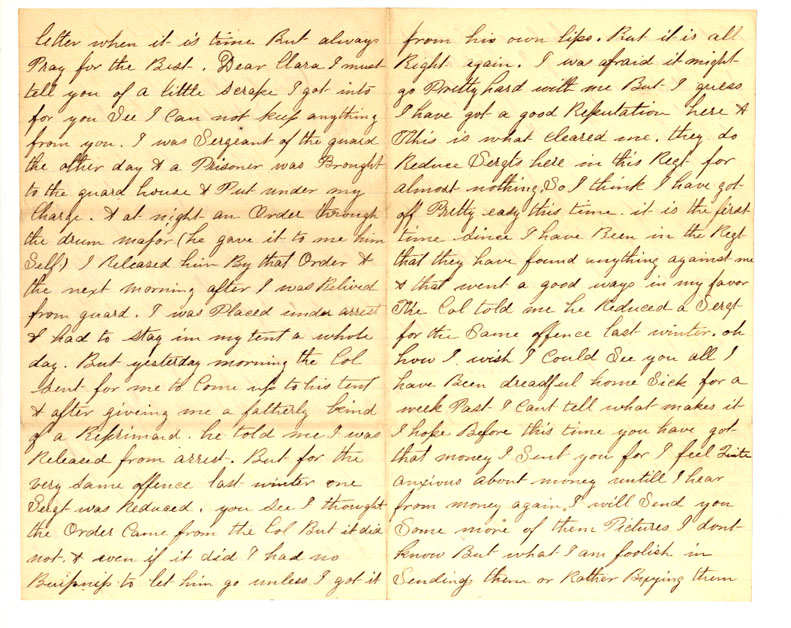 letter when it is time But always
Pray for the Best. Dear Clara I must
tell you of a little Scrape I got into
for you See I Can not keep anything
from you. I was Sergeant of the guard
the other day & a Prisoner was Brought
to the guard house & Put under my
Charge. & at night an Order through
the drum major (he gave it to me him
Self) I Released him By that Order &
the next morning after I was Relived
from guard. I was Placed under arrest
& had to Stay in my tent a whole
day. But yesterday morning the Col
Sent for me to Come up to his tent
& after giveing me a fatherly kind
of a Reprimand. he told me I was
Released from arrest. But for the
very same offence last winter one
Sergt was Reduced. you See I thought
the Order Came from the Col But it did
not. & even if it did I had no
Buisness to let him go unless I got it
from his own lips. But it is all
Right again. I was afraid it might
go Pretty hard with me But I guess
I have got a good Reputation here &
This is what Cleared me. they do
Reduce Sergts here in this Regt for
almost nothing. So I think I have got
off Pretty easy this time. it is the first
time since I have Been in the Regt
that they have found anything against me
& that went a good ways in my favor
The Col told me he Reduced a Sergt
for the Same offence last winter. oh
how I wish I Could See you all I
have Been dreadful home Sick for a
week Past I Cant tell what makes it
I hope Before this time you have got
that money I Sent you for I feel Quite
anxious about money untill I hear
from money again. I will Send you
Some more of them Pictures I dont
know But what I am foolish in
Sending them or Rather Buying them